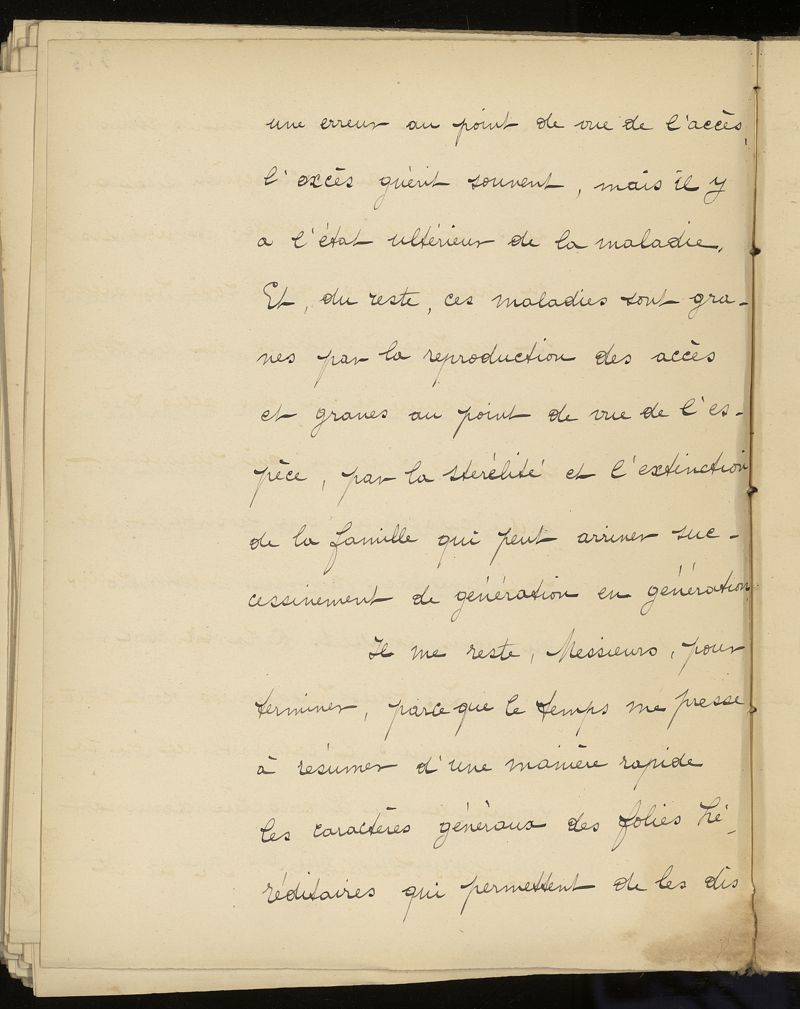 une erreur au point de vue de l'accès,
l'excès guérit souvent, mais il y
a l'état ultérieur de la maladie.
Et, du reste, ces maladies sont gra-
ves par la reproduction des accès
et graves au point de vue de l'es-
pèce, par la stérélité et l'extinction
de la famille qui peut arriver suc-
cessivement de génération en génération
Il me reste, Messieurs, pour
terminer, parce que le temps me presse
à résumer d'une manière rapide
les caractères généraux des folies hé-
réditaires qui permettent de les dis